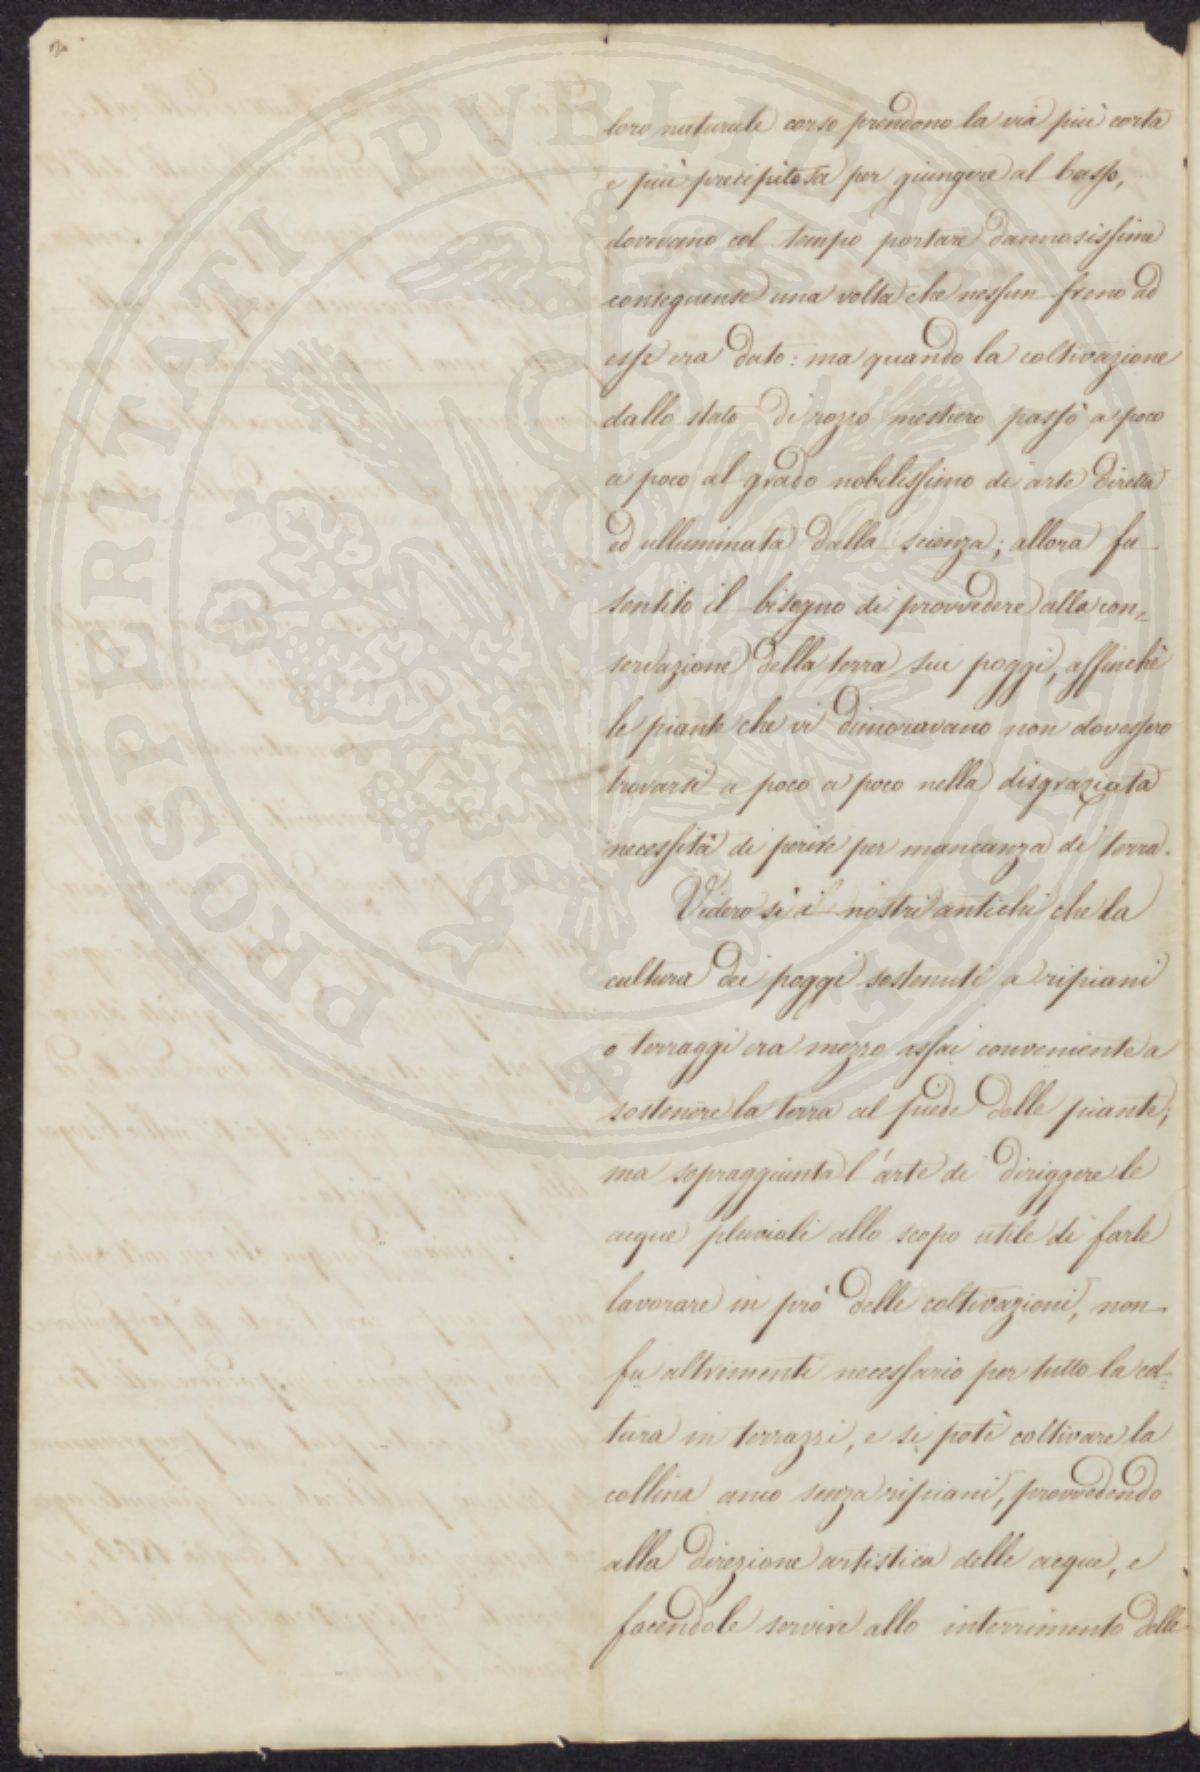 2
loro naturale corso prendono la via più corta
e più precipitosa per giungere al basso,
dovevano col tempo portare dannosissime
conseguense una volta che nessun freno ad
esse era dato: ma quando la coltivazione
dallo stato di rozzo mestiero passò a poco
a poco al grado nobilissimo di arte diretta
ed illuminata dalla scienza; allora fu
sentito il bisogno di provvedere alla con=
servazione della terra sui poggi, affinchè
le piante che vi dimoravano non dovessero
trovarsi a poco a poco nella disgraziata
necessità di perire per mancanza di terra.
Videro sì i nostri antichi che la
cultura dei poggi sostenuti a ripiani
o terraggi era mezzo assai conveniente a
sostenere la terra al piede delle piante;
ma sopraggiunta l'arte di diriggere le
acque pluviali allo scopo utile di farle
lavorare in prò delle coltivazioni, non
fu altrimenti necessario per tutto la col=
tura in terrazzi, e si potè coltivare la
collina anco senza ripiani, provvedendo
alla direzione artistica delle acque, e
facendole servire allo interrimento delle
PROSPERITATI PVBLICAE